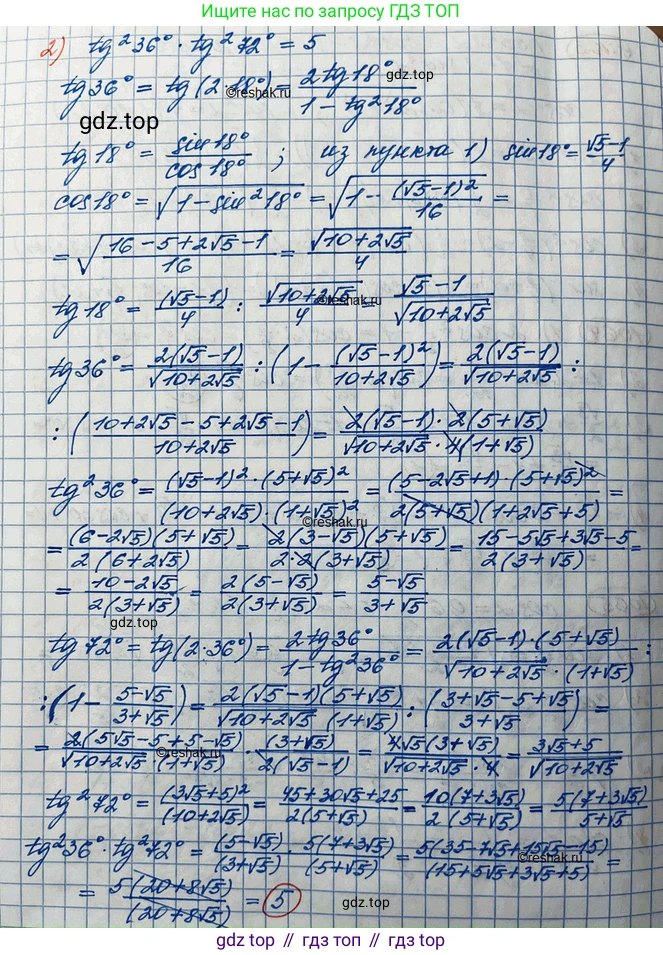 Ищите нас по запросу ГДЗ ТОП
2) tg²36° · tg²72° = 5
tg36° = tg(2·18°) = 2tg18° / (1 − tg²18°)
gdz.top
©reshak.ru
gdz.top
tg18° = sin18° / cos18° ; из пункта 1) sin18° = (√5−1)/4
cos18° = √(1−sin²18°) = √(1 − (√5−1)²/16) =
= √((16−5+2√5−1)/16) = √(10+2√5)/4
tg18° = (√5−1)/4 : √(10+2√5)/4 = (√5−1)/√(10+2√5)
©reshak.ru
tg36° = 2(√5−1)/√(10+2√5) : (1 − (√5−1)²/(10+2√5)) = 2(√5−1)/√(10+2√5) :
: ((10+2√5−5+2√5−1)/(10+2√5)) = 2(√5−1)·2(5+√5) / (√(10+2√5)·4(1+√5))
tg²36° = (√5−1)²·(5+√5)² / ((10+2√5)·(1+√5)²) = (5−2√5+1)·(5+√5)² / (2(5+√5)(1+2√5+5)) =
©reshak.ru
= (6−2√5)(5+√5) / (2(6+2√5)) = 2(3−√5)(5+√5) / (2·2(3+√5)) = (15−5√5+3√5−5) / (2(3+√5)) =
= (10−2√5) / (2(3+√5)) = 2(5−√5) / (2(3+√5)) = (5−√5)/(3+√5)
gdz.top
tg72° = tg(2·36°) = 2tg36° / (1−tg²36°) = 2(√5−1)·(5+√5) / (√(10+2√5)·(1+√5)) :
: (1 − (5−√5)/(3+√5)) = 2(√5−1)(5+√5) / (√(10+2√5) (1+√5)) : ((3+√5−5+√5)/(3+√5)) =
= 2(5√5−5+5−√5) / (√(10+2√5)·(1+√5)) · (3+√5) / (2(√5−1)) = 4√5(3+√5) / (√(10+2√5)·4) = (3√5+5)/√(10+2√5)
©reshak.ru
tg²72° = (3√5+5)²/(10+2√5) = (45+30√5+25)/(2(5+√5)) = 10(7+3√5)/(2(5+√5)) = 5(7+3√5)/(5+√5)
tg²36° · tg²72° = (5−√5)/(3+√5) · 5(7+3√5)/(5+√5) = 5(35−7√5+15√5−15)/(15+5√5+3√5+5) =
©reshak.ru
= 5(20+8√5)/(20+8√5) = 5
gdz.top
gdz.top // гдз.топ // gdz.top